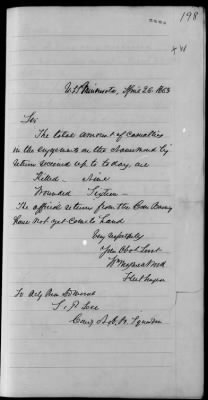 198
U.S. Minnesota, April 26 1863
Sir
The total amount of casualties
in the engagements on the Nansemond by
return received up to to day, are
Killed — Nine
Wounded Sixteen —
The official returns from the Com Barney
have not yet come to hand
Very respectfully
Your Obdt Servt
Fleet Surgeon
To Actg Rear Admiral
S. P. Lee
Comg N. A. B. Squadron